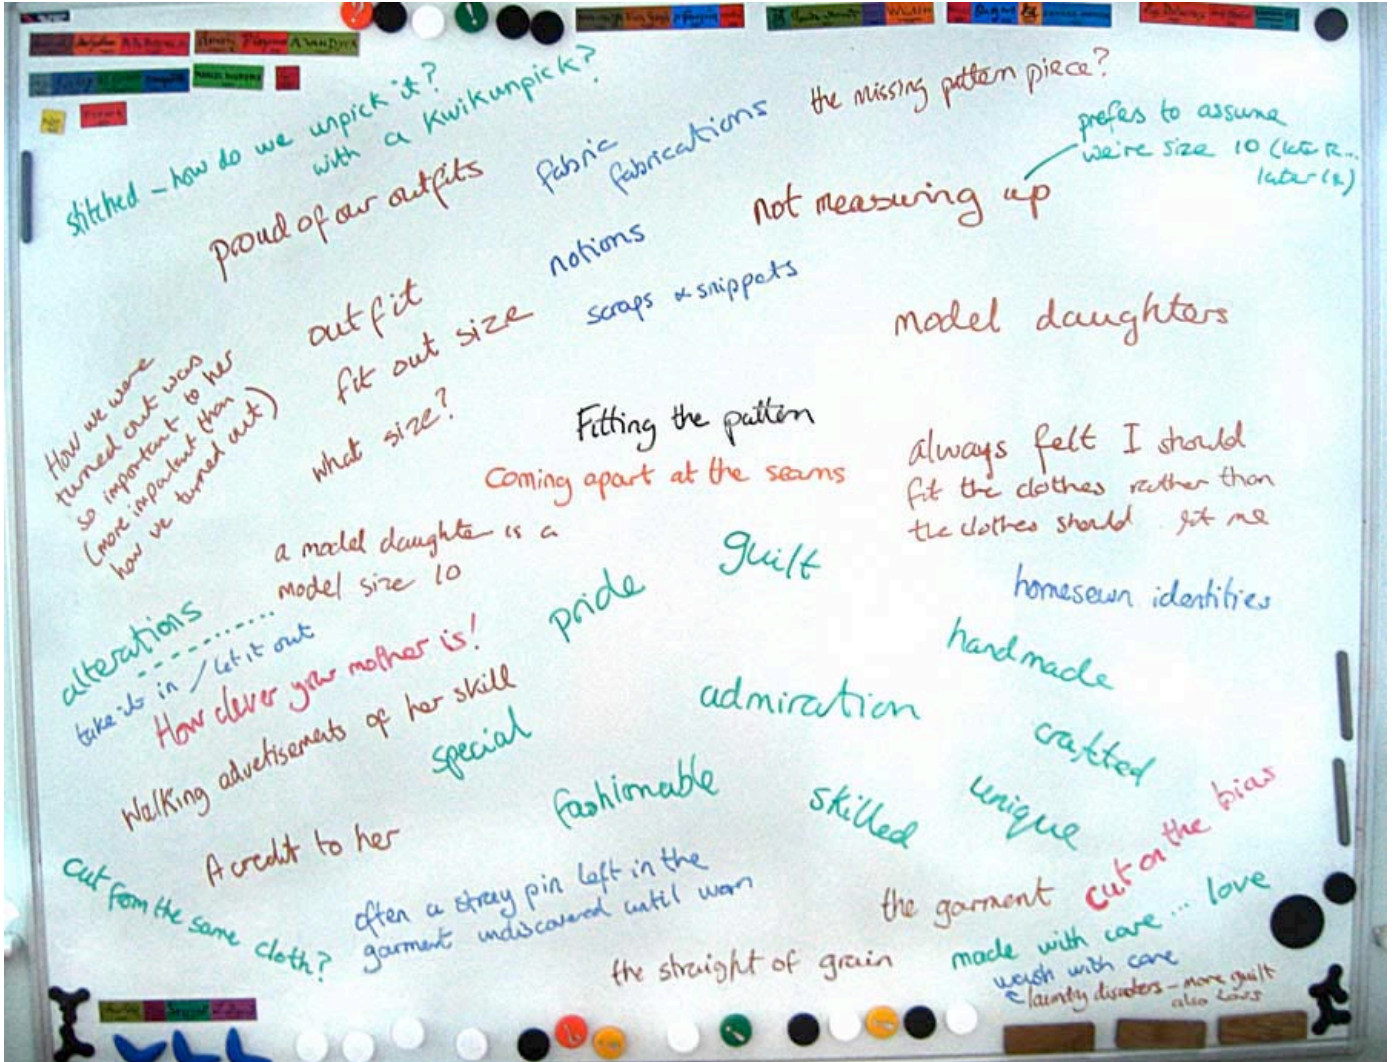 stitched - how do we unpick it?
with a Kwikunpick?
proud of our outfits
fabric
fabrications
the missing pattern piece?
prefers to assume
we're size 10
not measuring up
notions
scraps & snippets
outfit
fit out size
what size?
model daughters
How we were
turned out was
so important to her
(more important than
how we turned out)
Fitting the pattern
Coming apart at the seams
always felt I should
fit the clothes rather than
the clothes should fit me
a model daughter is a
model size 10
guilt
pride
homesewn identities
alterations
take it in / let it out
How clever your mother is!
handmade
admiration
Walking advertisements of her skill
special
crafted
fashionable
skilled
unique
cut on the bias
A credit to her
cut from the same cloth?
often a stray pin left in the
garment undiscovered until worn
the garment
made with care... love
the straight of grain
wash with care
laundry disasters - more guilt